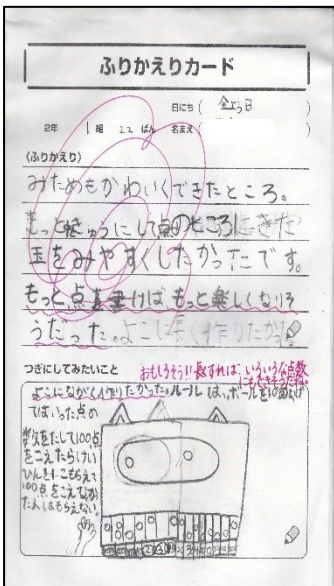 ふりかえりカード
日にち( 金よう日
2年 1組 22ばん 名まえ(
〈ふりかえり〉
みためもかわいくできたところ。
もっときゅうにして点のところにきた
玉をみやすくしたかったです。
もっと点を書けばもっと楽しくなりそ
うだった。よこに長く作りたかった。
つぎにしてみたいこと
おもしろそう!!長くすれば、いろいろな点数
にもできそうだね。
よこにながく作りたかった。ルールは、ボールを10回
てはいった点の
数をたして100点
をこえたらけい
ひんを もらえて
100点をこえなかっ
た人はもらえない